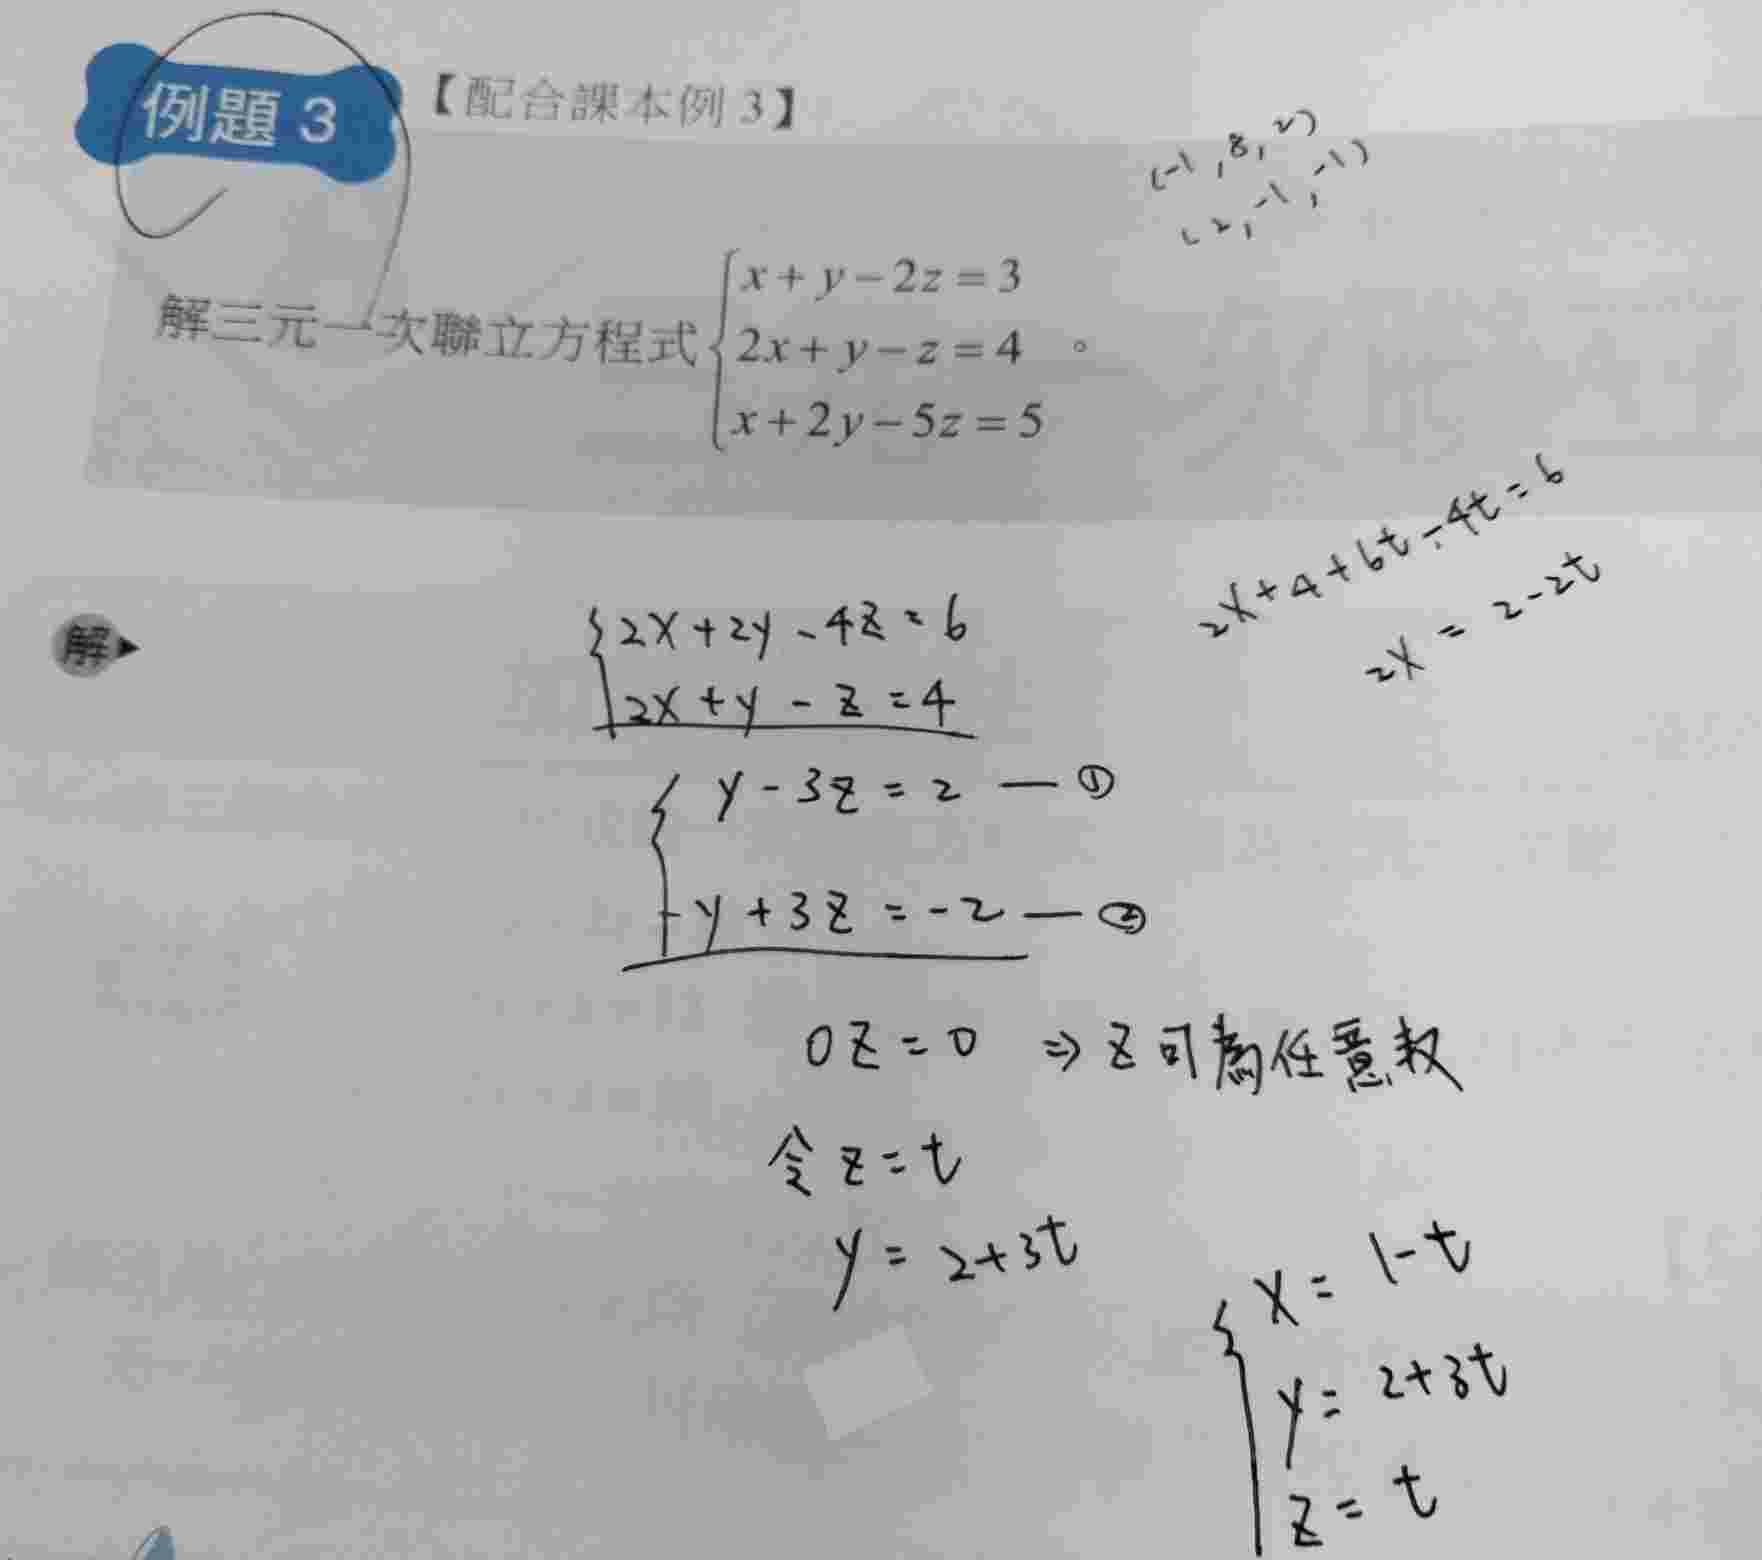 例題 3
【配合課本例 3】
(-1, 8, 2)
(2, -1, -1)
x + y - 2z = 3
解三元一次聯立方程式 2x + y - z = 4 。
x + 2y - 5z = 5
2x + 4 + 6t - 4t = 6
2x = 2 - 2t
解
2x + 2y - 4z = 6
2x + y - z = 4
y - 3z = 2 — ①
-y + 3z = -2 — ②
0z = 0 ⇒ z 可為任意數
令 z = t
y = 2 + 3t
x = 1 - t
y = 2 + 3t
z = t